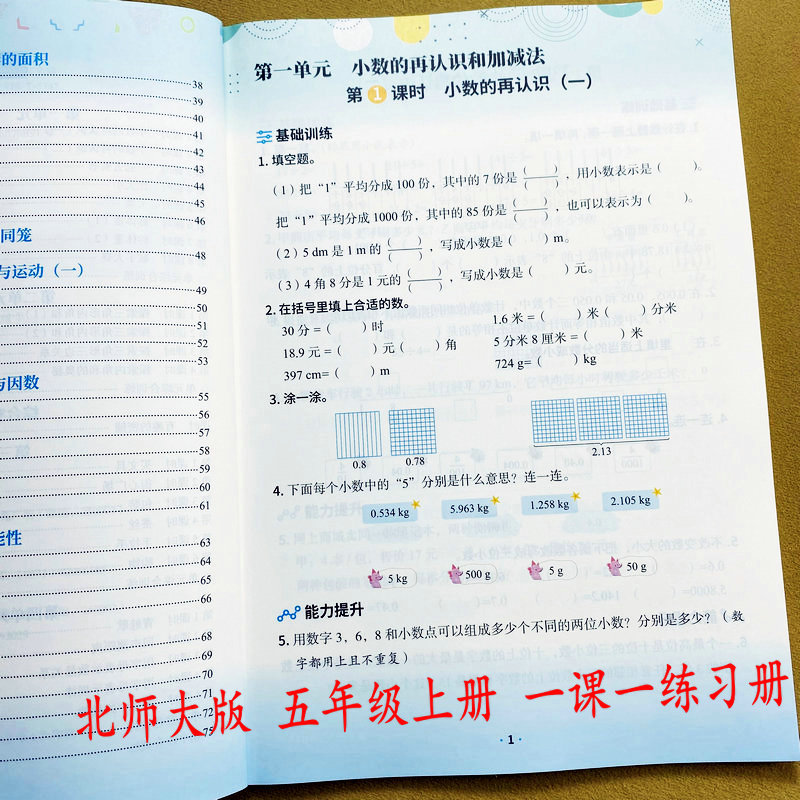 的面积
38
39
40
41
42
43
44
45
46
同笼
48
与运动（一）
49
50
51
52
53
与因数
55
56
57
58
59
60
61
能性
63
64
65
66
68
69
70
71
72
75
第一单元 小数的再认识和加减法
第1课时 小数的再认识（一）
基础训练
1. 填空题。
（1）把“1”平均分成100份，其中的7份是（ ）/（ ），用小数表示是（ ）。
把“1”平均分成1000份，其中的85份是（ ）/（ ），也可以表示为（ ）。
（2）5 dm是1 m的（ ）/（ ），写成小数是（ ）m。
（3）4角8分是1元的（ ）/（ ），写成小数是（ ）元。
2. 在括号里填上合适的数。
30分=（ ）时 1.6米=（ ）米（ ）分米
18.9元=（ ）元（ ）角 5分米8厘米=（ ）米
397 cm=（ ）m 724 g=（ ）kg
3. 涂一涂。
0.8 0.78 2.13
4. 下面每个小数中的“5”分别是什么意思？连一连。
0.534 kg 5.963 kg 1.258 kg 2.105 kg
5 kg 500 g 5 g 50 g
能力提升
5. 用数字3，6，8和小数点可以组成多少个不同的两位小数？分别是多少？（数
字都用上且不重复）
北师大版 五年级上册 一课一练习册
· 1 ·